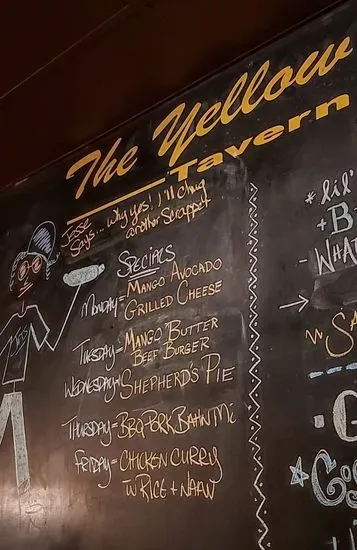 The Yellow
Tavern
Jesse
Says... Why yes, I'll chug
another Scrappet
Specials
Monday= Mango Avocado
Grilled Cheese
Tuesday= Mango Butter
Beef Burger
Wednesday= Shepherd's Pie
Thursday= BBQ Pork Bahn Mi
Friday= Chicken Curry
w Rice + Naan
* lil'
+ B
- Wha
→